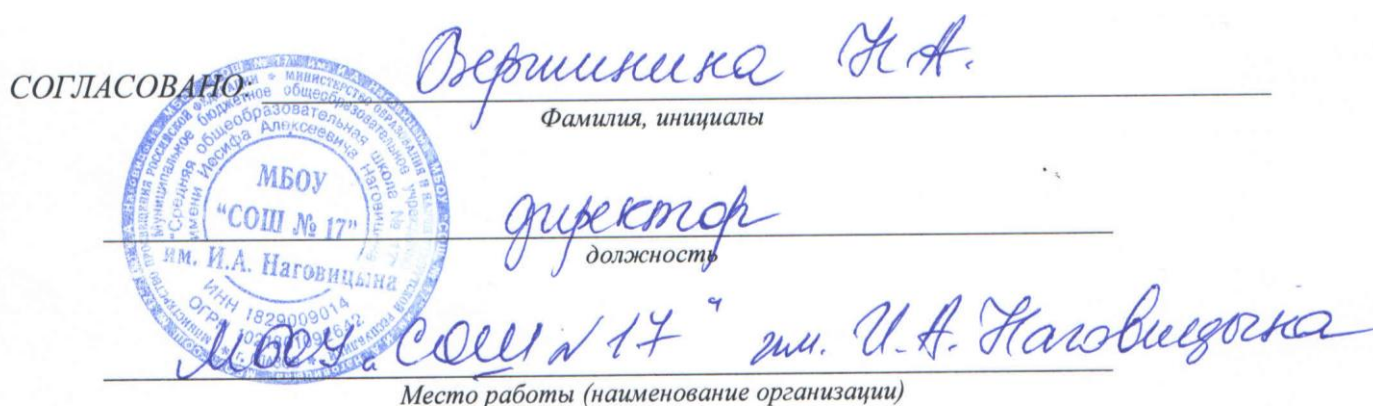 СОГЛАСОВАНО: Вершинина Н.А.
Фамилия, инициалы
директор
должность
МБОУ „СОШ №17" им. И.А. Наговицына
Место работы (наименование организации)
Муниципальное бюджетное общеобразовательное учреждение
"Средняя общеобразовательная школа № 17"
имени Иосифа Алексеевича Наговицына
МБОУ
"СОШ № 17"
им. И.А. Наговицына
ИНН 1829009014
ОГРН